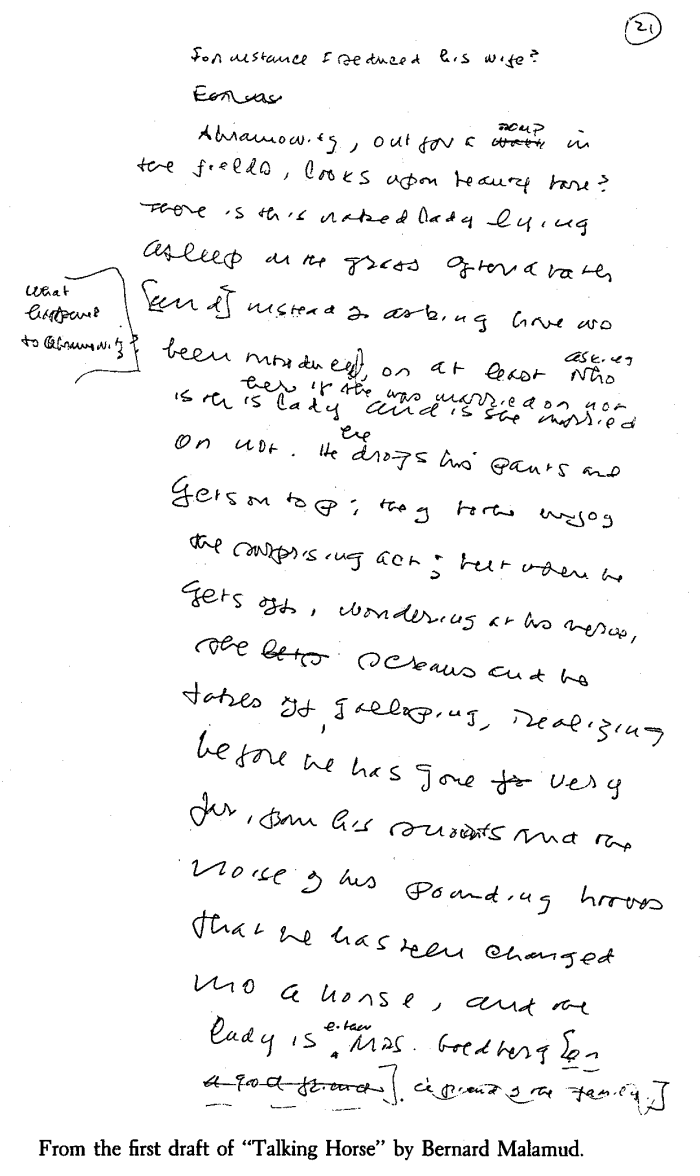 21
For instance I seduced his wife?
Abramowitz, out for a romp in
the fields, looks upon beauty bare?
There is this naked lady lying
asleep in the grass after a bath
[and] instead of asking have we
been introduced, or at least asking who
her if she was married or not
is this lady and is she married
or not. He drops his pants and
gets on top; they both enjoy
the surprising act; but when he
gets off, wondering at his nerve,
she lets screams and he
takes off, galloping, realizing
before he has gone far very
far, from his snorts and the
noise of his pounding hooves
that he has been changed
into a horse, and the
lady is either Mrs. Goldberg [or
a good friend]. a friend of the family.]
What
happens
to Abramowitz?
From the first draft of “Talking Horse” by Bernard Malamud.